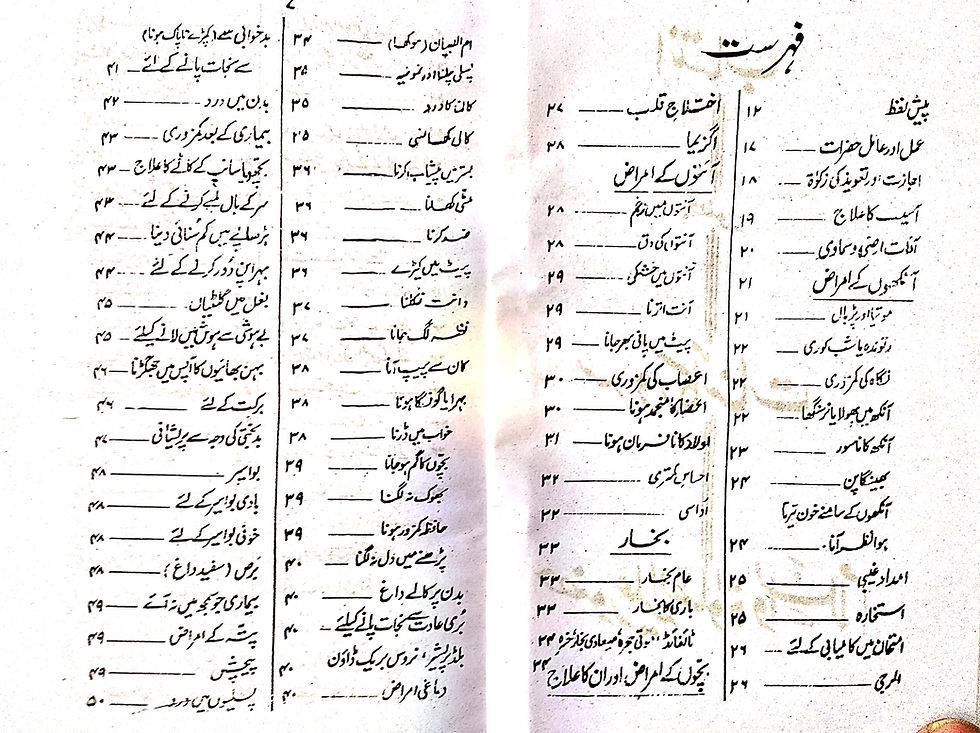 فہرست
پیش لفظ ۱۲
عمل اور عامل حضرات ۱۷
اجازت اور تعویذ کی زکوٰۃ ۱۸
آسیب کا علاج ۱۹
آفات ارضی و سماوی ۲۰
آنکھوں کے امراض ۲۱
موتیا اور پڑبال ۲۱
رتوندہ یا شب کوری ۲۲
نگاہ کی کمزوری ۲۲
آنکھ میں پھولا یا زخم ۲۲
آنکھ کا ناسور ۲۳
بھینگا پن ۲۴
آنکھوں کے سامنے خون تیرتا
ہوا نظر آنا ۲۴
امداد غیبی ۲۵
استخارہ ۲۵
امتحان میں کامیابی کے لئے ۲۶
الرجی ۲۶
اختلاج قلب ۲۷
اگزیما ۲۸
آنتوں کے امراض
آنتوں میں زخم ۲۸
آنتوں کی دق ۲۸
آنتوں میں خشکی ۲۹
آنت اترنا ۲۹
پیٹ میں پانی بھر جانا ۲۹
اعصاب کی کمزوری ۳۰
اعضا کا منجمد ہونا ۳۰
اولاد کا نافرمان ہونا ۳۱
احساس کمتری ۳۲
اداسی ۳۲
بخار ۳۳
عام بخار ۳۳
باری کا بخار ۳۳
ٹائفائڈ، موتی جھرہ، میعادی بخار، خسرہ ۳۴
بچوں کے امراض اور ان کا علاج ۳۴
ام الصبیان (سوکھا) ۳۴
پسلی چلنا اور نمونیہ ۳۵
کان کا درد ۳۵
کالی کھانسی ۳۵
بستر میں پیشاب کرنا ۳۶
مٹی کھانا ۳۶
ضد کرنا ۳۶
پیٹ میں کیڑے ۳۶
دانت نکلنا ۳۷
نظر لگ جانا ۳۷
کان سے پیپ آنا ۳۸
بہرا یا گونگا ہونا ۳۸
خواب میں ڈرنا ۳۸
بچوں کا گم ہو جانا ۳۹
بھوک نہ لگنا ۳۹
حافظہ کمزور ہونا ۳۹
پڑھنے میں دل نہ لگنا ۴۰
بدن پر کالے داغ ۴۰
بُری عادت سے نجات پانے کیلئے ۴۰
بلڈ پریشر، نروس بریک ڈاؤن ۴۰
دماغی امراض ۴۰
بدخوابی سے (کپڑے ناپاک ہونا)
سے نجات پانے کے لئے ۴۱
بدن میں درد ۴۲
بیماری کے بعد کمزوری ۴۳
بچھو یا سانپ کے کاٹے کا علاج ۴۳
سر کے بال لمبے کرنے کے لئے ۴۳
بڑھاپے میں کم سنائی دینا ۴۴
بہرا پن دُور کرنے کے لئے ۴۴
بغل میں گلٹیاں ۴۵
بے ہوشی سے ہوش میں لانے کیلئے ۴۵
بہن بھائیوں کا آپس میں جھگڑنا ۴۶
برکت کے لئے ۴۶
بدبختی کی وجہ سے پریشانی ۴۷
بواسیر ۴۸
بادی بواسیر کے لئے ۴۸
خونی بواسیر کے لئے ۴۸
برص (سفید داغ) ۴۸
بیماری جو سمجھ میں نہ آئے ۴۹
پتّہ کے امراض ۴۹
پیچش ۴۹
پسلیوں میں درد ۵۰